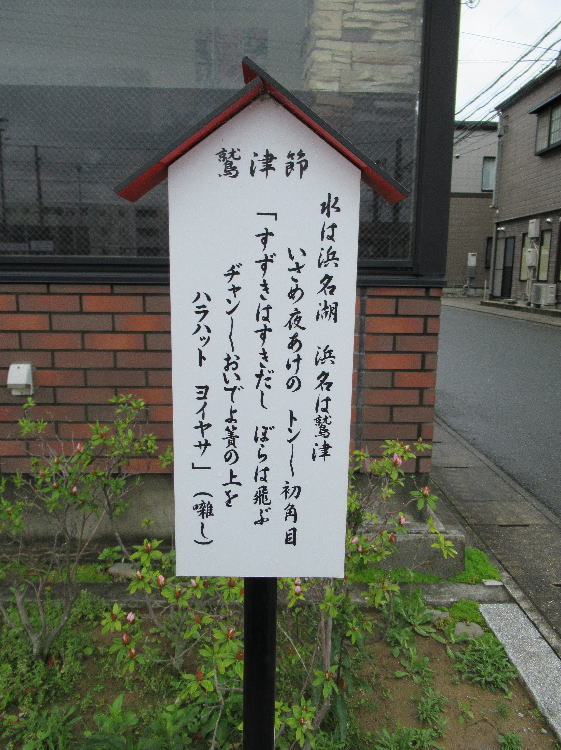 鷲津節
水は浜名湖　浜名は鷲津
いさめ夜あけの　トン〱初角目
「すずきはすきだし　ぼらは飛ぶ
ヂャン〱おいでよ簀の上を
ハラハット　ヨイヤサ」（囃し）